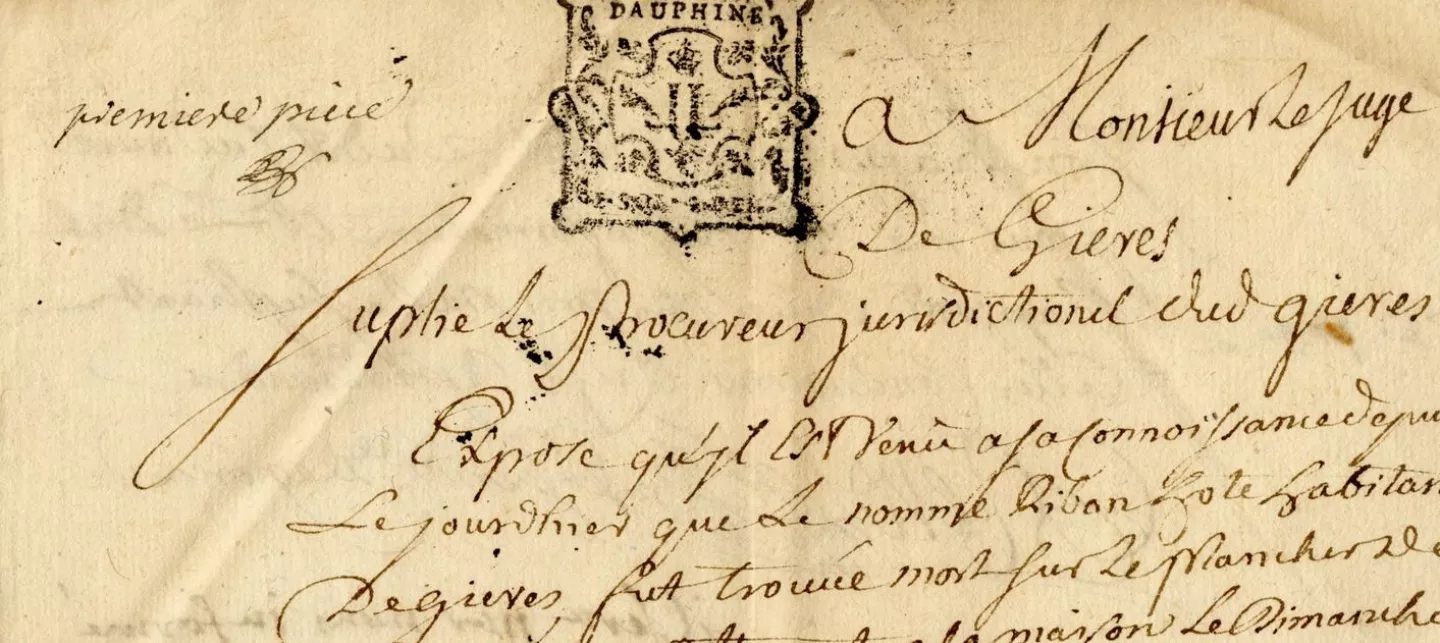 DAUPHINE
premiere piece
A Monsieur Le Juge
De Gieres
Suplie Le Procureur jurisdictionel dud gieres
Expose qu'jl Est Venu a sa connoissance depui
Le jourdhier que Le nommé Riban hote habitan
De Gieres fut trouvé mort sur Le Plancher De
maison Le Dimanche